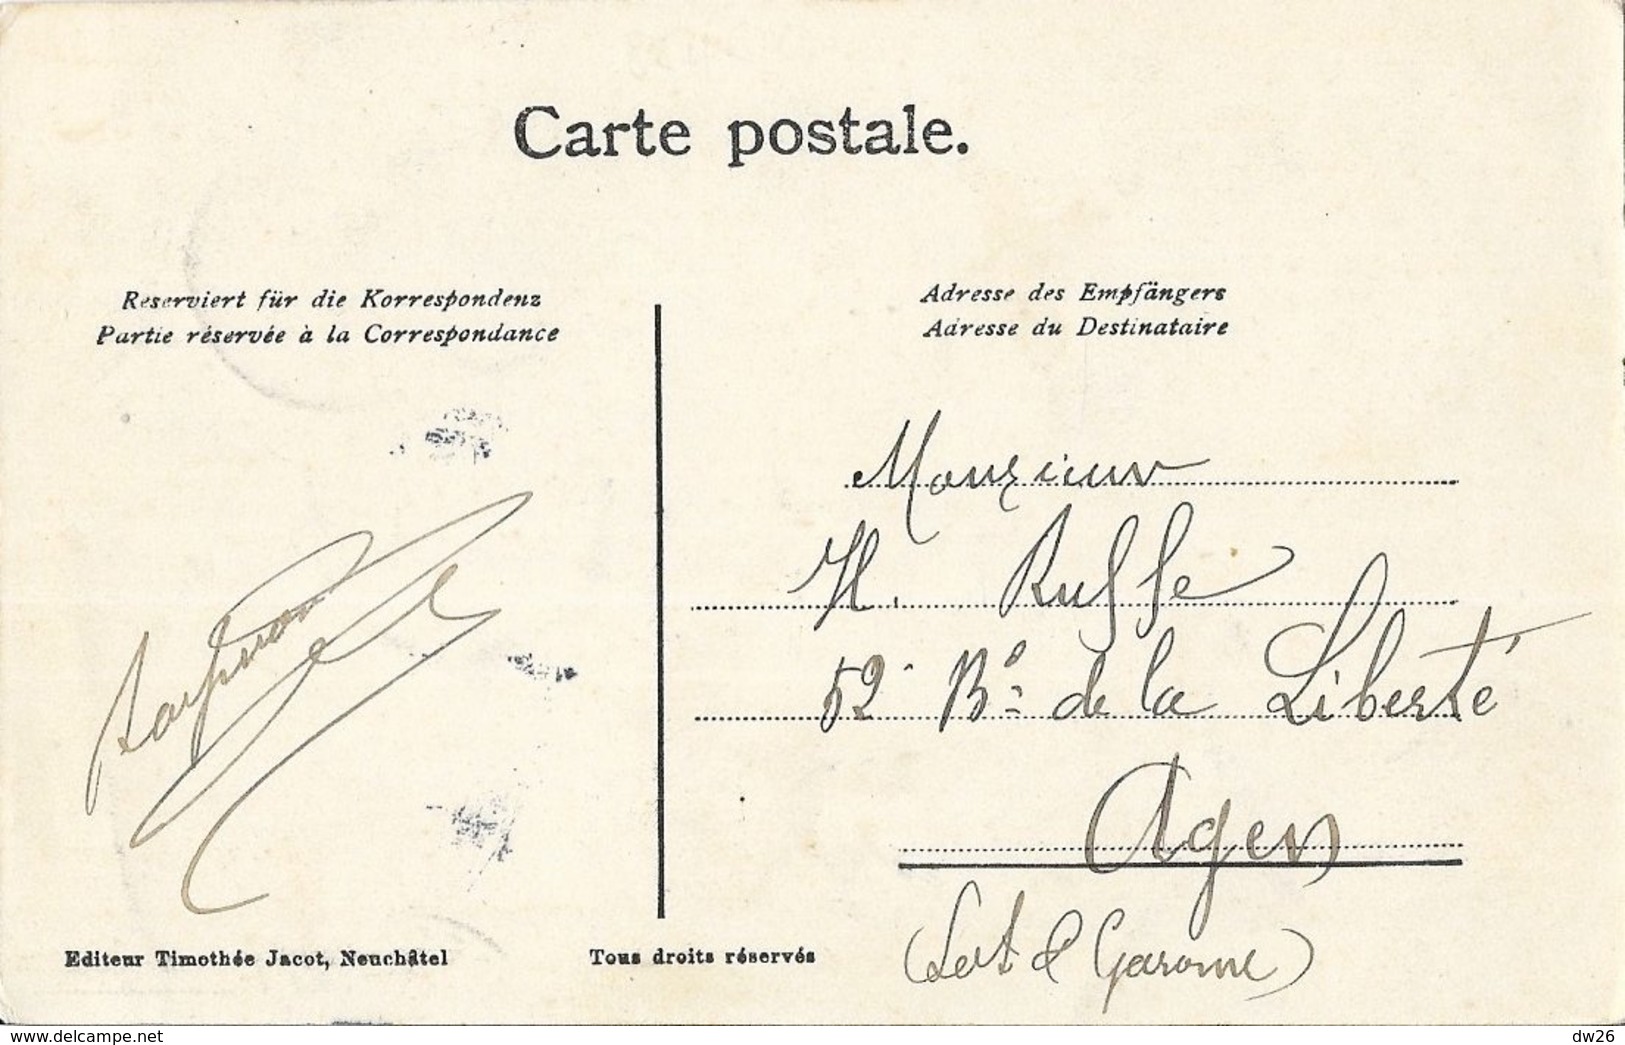 Carte postale.
Reserviert für die Korrespondenz
Partie réservée à la Correspondance
Adresse des Empfängers
Adresse du Destinataire
Monsieur
H. Ruffe
52 Bd de la Liberté
Agen
(Lot & Garonne)
Editeur Timothée Jacot, Neuchâtel
Tous droits réservés
www.delcampe.net
dw26